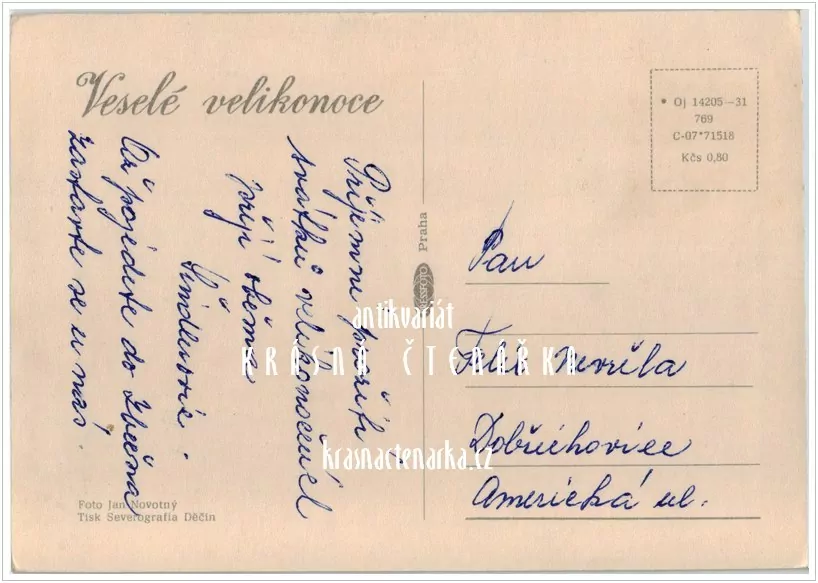 Veselé velikonoce
Příjemné prožití
svátků velikonočních
přejí oběma
Šindlerovi.
Až pojedete do Zbečna,
zastavte se u nás.
Foto Jan Novotný
Tisk Severografia Děčín
PRESSFOTO Praha
• Oj 14205—31
769
C-07*71518
Kčs 0,80
Pan
Dobřichovice
Americká ul.
antikvariát
KRÁSNÁ ČTENÁŘKA
krasnactenarka.cz